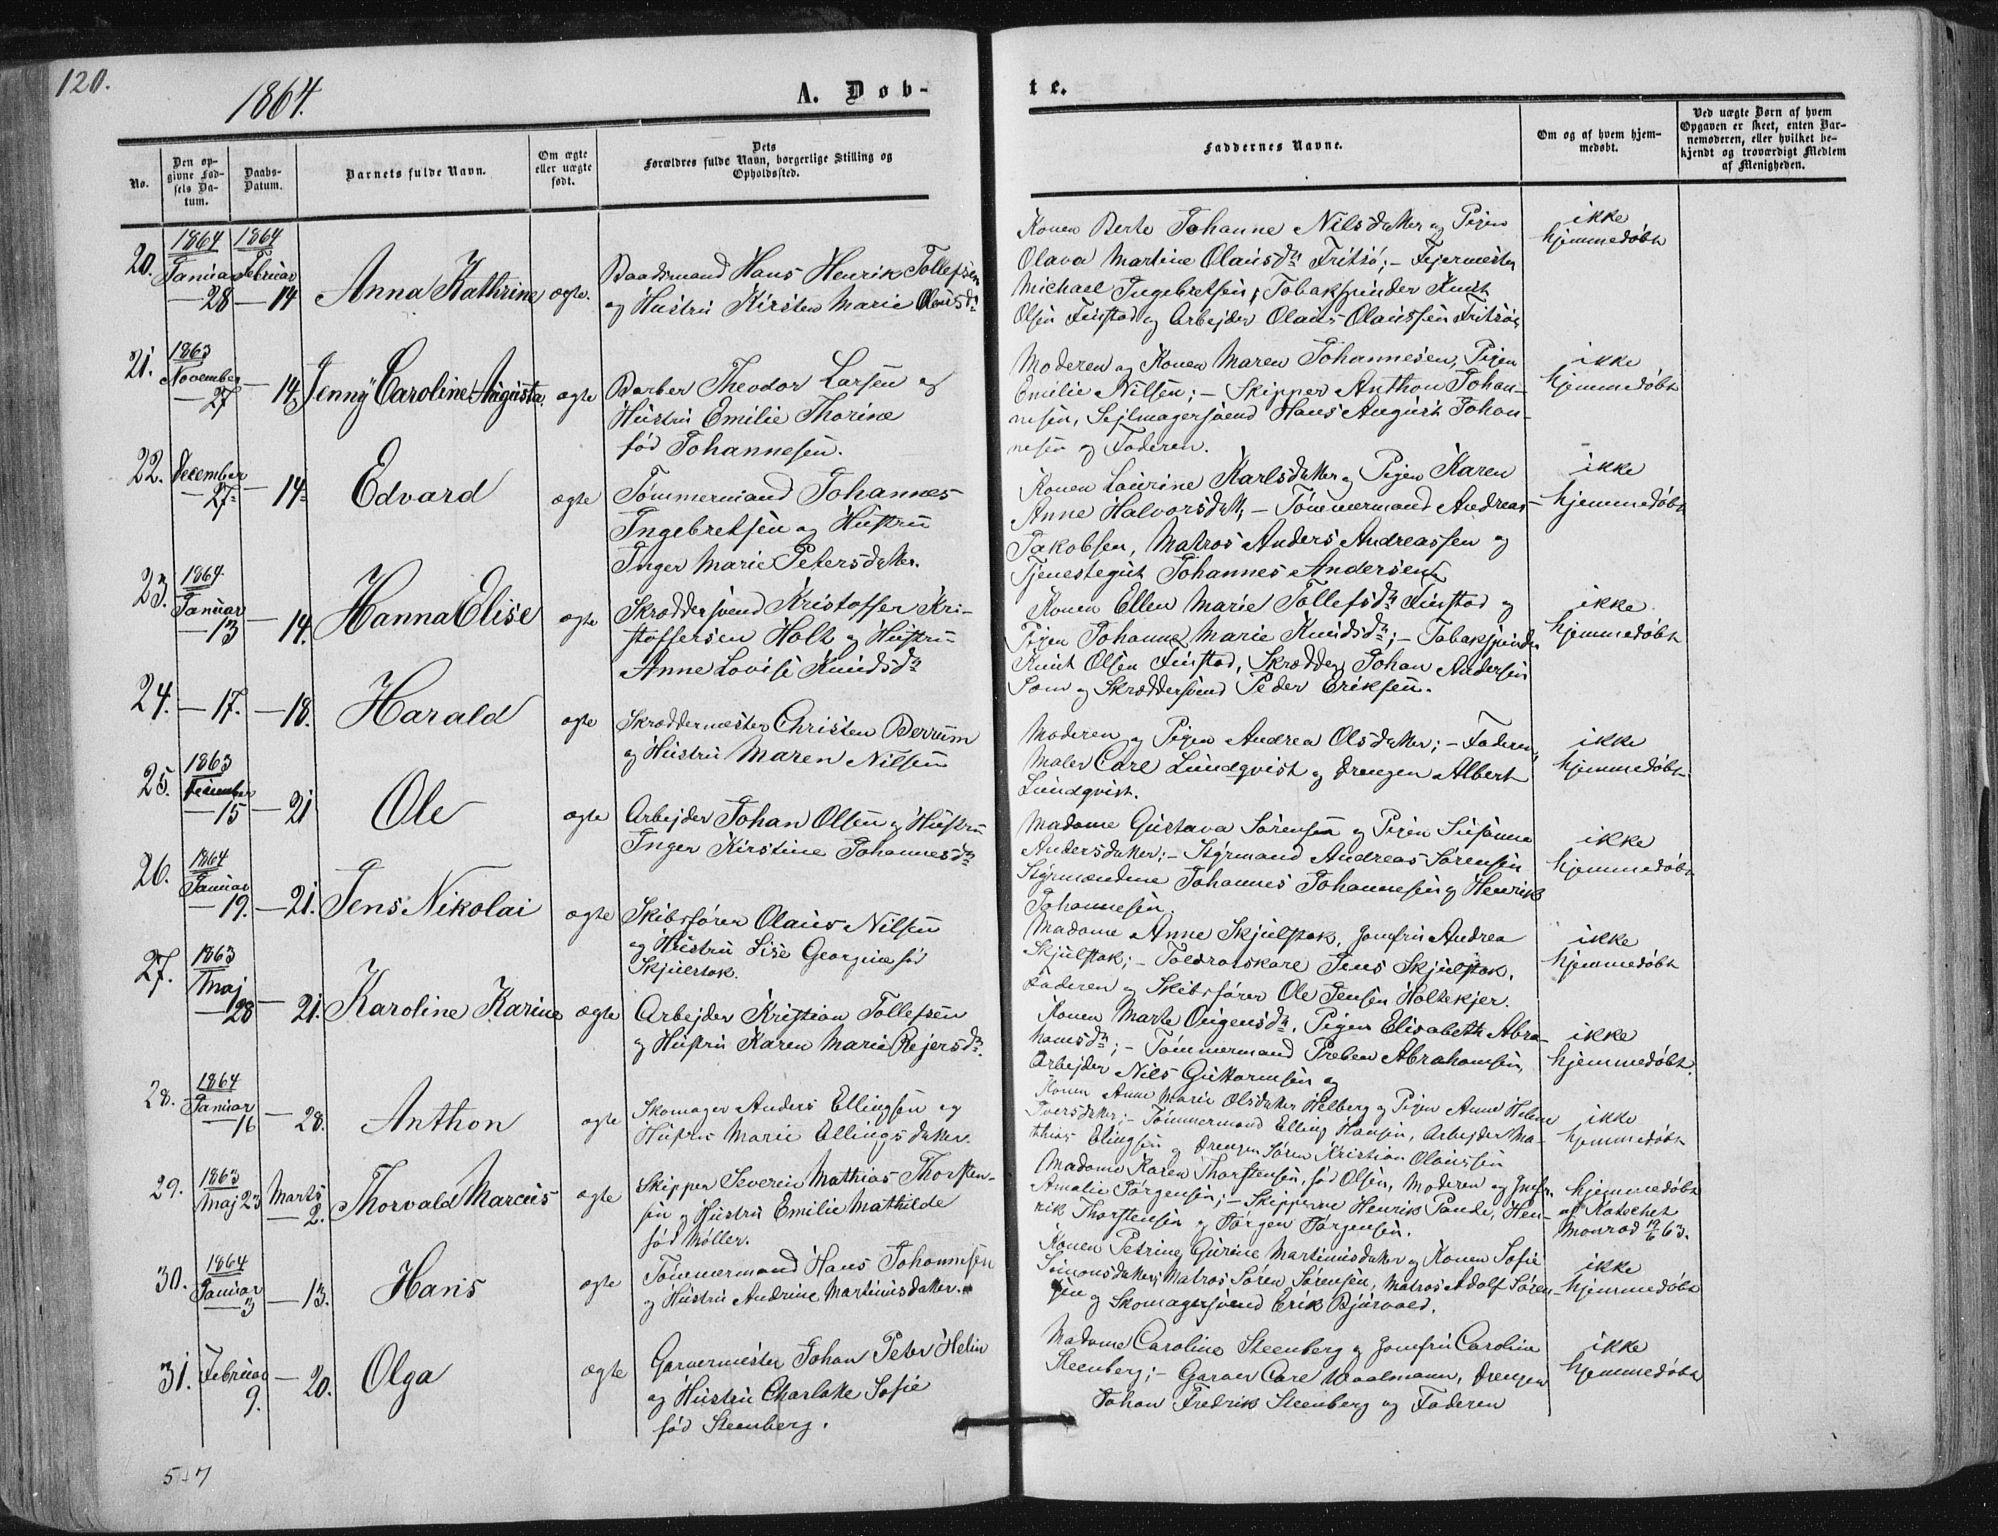 120.
1864.
A. Døb-
te.
No.
Den op-
givne Fød-
sels Da-
tum.
Daabs-
Datum.
Barnets fulde Navn.
Om ægte
eller uægte
født.
Dets
Forældres fulde Navn, borgerlige Stilling og
Opholdssted.
Faddernes Navne.
Om og af hvem hjem-
medøbt.
Ved uægte Børn af hvem
Opgaven er skeet, enten Bar-
nemoderen, eller hvilket be-
kjendt og troværdigt Medlem
af Menigheden.
20.
1864
Januar
— 28
1864
Februar
— 14
Anna Kathrine
ægte.
Baadsmand Hans Henrik Tollefsen
og Hustru Kirsten Marie Olausdr
Konen Berte Johanne Nilsdatter og Pigen
Olava Martine Olausdr Fritsø; — Fejermester
Michael Ingebretsen, Tobakspinder Knut
Olsen Finstad og Arbejder Olaus Olaussen Fritsøe
ikke
hjemmedøbt
21.
1863
November
— 27
— 14
Jenny Caroline Augusta.
ægte
Barber Theodor Larsen og
Hustru Emilie Thorine
fød Johannesen.
Moderen og Konen Maren Johannesen, Pigen
Emilie Nilsen; — Skipper Anthon Johan-
nesen, Sejlmagersvend Hans August Johan-
nesen og Faderen.
ikke
hjemmedøbt
22.
December
— 27
— 14
Edvard
ægte
Tømmermand Johannes
Ingebretsen og Hustru
Inger Marie Petersdatter.
Konen Laurine Karlsdatter og Pigen Karen
Anne Halvorsdatt, — Tømmermand Andreas
Jakobsen, Matros Anders Andreassen og
Tjenestegut Johannes Andersen
ikke
hjemmedøbt
23.
1864
Januar
— 13
— 14.
Hanna Elise
ægte
Skræddersvend Kristoffer Kri-
stoffersen Holt og Hustru
Anne Lovise Knudsdr
Konen Ellen Marie Tollefsdr Finstad og
Pigen Johanne Marie Knudsdr; — Tobakspinder
Knut Olsen Finstad, Skrædder Johan Andersen
Som og Skræddersvend Peder Eriksen.
ikke
hjemmedøbt
24.
— 17.
— 18.
Harald
ægte
Skræddermester Christen Berrum
og Hustru Maren Nilsen
Moderen og Pigen Andrea Olsdatter; — Faderen,
Maler Carl Lundqvist og Drengen Albert
Lundqvist.
ikke
hjemmedøbt
25.
1863
December
— 15
— 21
Ole
ægte
Arbejder Johan Olsen og Hustru
Inger Kirstine Johannesdr
Madame Gustava Sørensen og Pigen Susanne
Andersdatter; — Styrmand Andreas Sørensen
Styrmændene Johannes Johannesen og Henrik
Johannesen.
ikke
hjemmedøbt
26.
1864
Januar
— 19.
— 21.
Jens Nikolai
ægte
Skibsfører Olaus Nilsen
og Hustru Lise Georgine fød
Skjulstok.
Madame Anne Skjulstok, Jomfru Andrea
Skjulstok; — Toldroiskarl Jens Skjulstok,
Faderen og Skibsfører Ole Jensen Holtekjer.
ikke
hjemmedøbt
27.
1863
Maj
— 28
— 21.
Karoline Karine
ægte
Arbejder Kristian Tollefsen
og Hustru Karen Marie Rejersdr.
Konen Marte Ougensdr, Pigen Elisabeth Abra-
hamsdr; — Tømmermand Preben Abrahamsen,
Arbejder Nils Guttormsen og
ikke
hjemmedøbt.
28.
1864
Januar
— 16
— 28.
Anthon
ægte
Skomager Anders Ellingsen og
Hustru Marie Ellingsdatter.
Konen Anne Marie Olsdatter Helberg og Pigen Anne Helene
Iversdatter; — Tømmermand Elling Hansen, Arbejder Ma-
thias Elingsen og Drengen Søren Kristian Olaussen
ikke
hjemmedøbt
29.
1863
Maj 23
Marts
— 2.
Thorvald Marcus
ægte
Skipper Severin Mathias Thorsten-
sen og Hustru Emilie Mathilde
fød Møller.
Madame Karen Thorstensen, fød Olsen, Moderen og Jomfru
Amalie Jørgensen; — Skipperne Henrik Pande, Hen-
rik Thorstensen og Jørgen Jørgensen.
hjemmedøbt
af Katechet
Monrad 19/6 63.
30.
1864
Januar
— 3
— 13.
Hans
ægte
Tømmermand Hans Johannesen
og Hustru Andrine Martinusdatter.
Konen Petrine Gurine Martinusdatter og Konen Sofie
Simonsdatter, Matros Søren Sørensen, Matros Adolf Søren-
sen og Skomagersvend Erik Bjurvald.
ikke
hjemmedøbt
31.
Februar
9.
— 20.
Olga
ægte
Garvermester Johan Peter Helin
og Hustru Charlotte Sofie
fød Steenberg.
Madame Caroline Steenberg og Jomfru Caroline
Steenberg; — Garver Carl Waalmann, Drengen
Johan Fredrik Steenberg og Faderen
ikke
hjemmedøbt
5+7